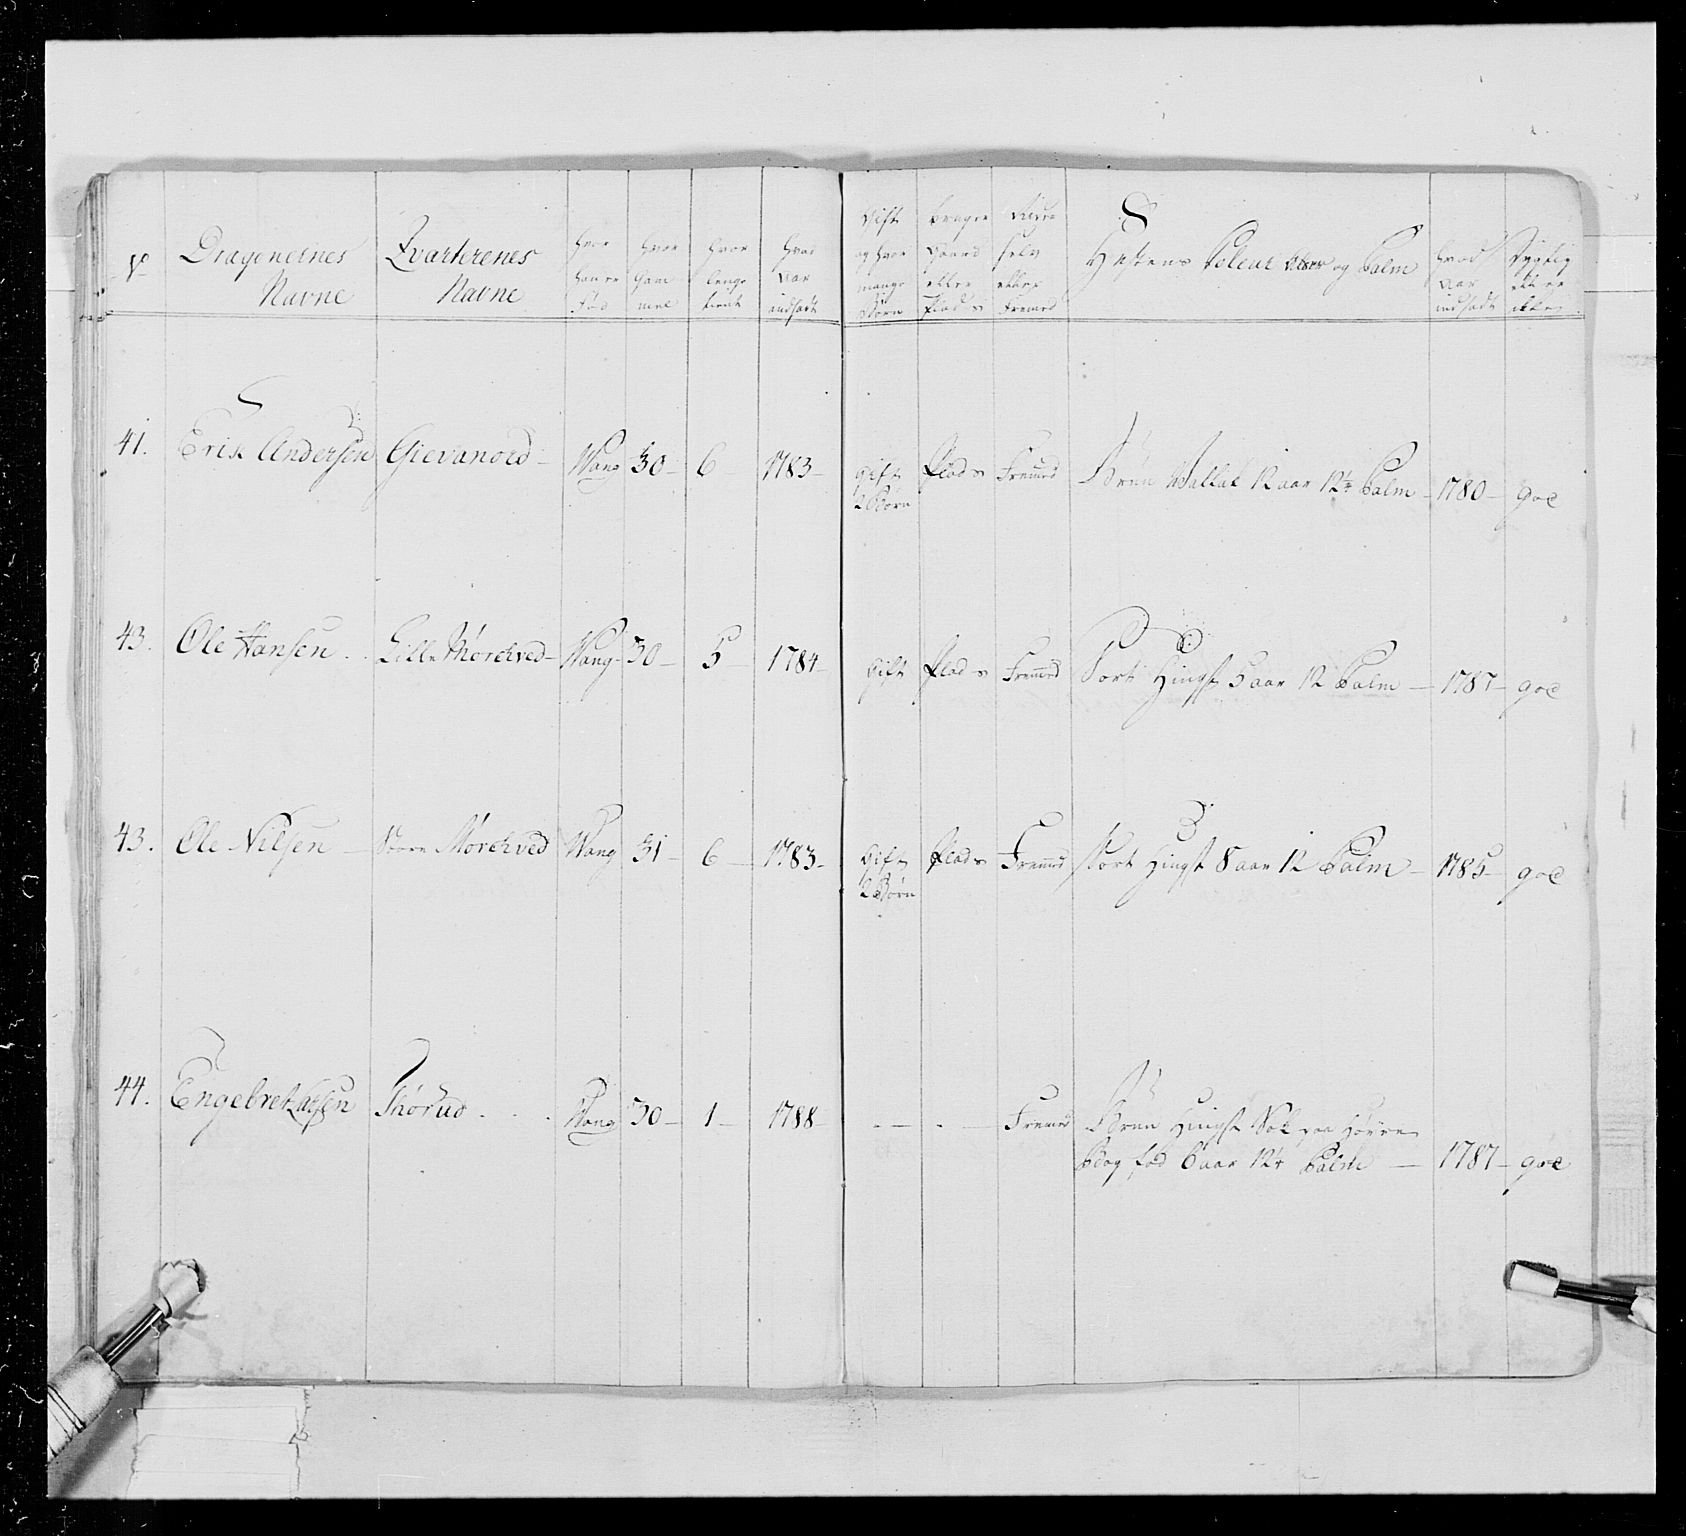 No Dragonernes Navne | Qvarterenes Navne | hvor han er fød | hvor Gam mel | hvor lenge tient | hvad Aar indsadt | Gift og hvor mange Børn | bruger Gaard eller Plads | Rider selv eller Fremed | Hestens Coleur Alder og Palm | hvad Aar indsadt | Dygtig eller ikke
41. Erik Andersen | Gievanord | Wang | 30 | 6 | 1783 | Gift 2 Børn | Plads | Fremed | Brun Wallak 12 aar 12 1/4 Palm | 1780 | god
43. Ole Hansen | Lille Mørchved | Wang | 30 | 5 | 1784 | Gift | Plads | Fremed | Sort Hingst 5 aar 12 Palm | 1787 | god
43. Ole Nilsen | Store Mørchved | Wang | 31 | 6 | 1783 | Gift 2 Børn | Plads | Fremed | Sort Hingst 8 aar 12 Palm | 1785 | god
44. Engebret Larsen | Thørud | Wang | 30 | 1 | 1788 | Fremed | Brun Hingst Sok paa Høyre
Bag fod 6 aar 12 1/4 Palm | 1787 | god